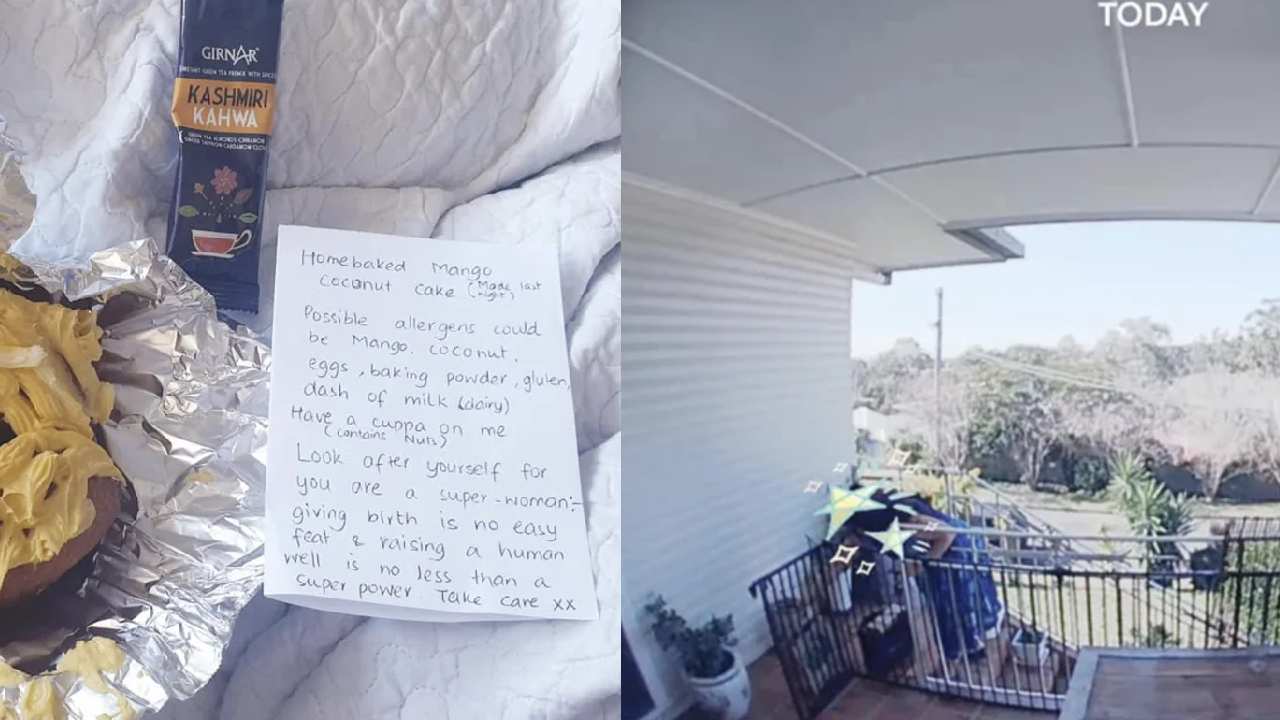 GIRNAR
INSTANT GREEN TEA PREMIX WITH SPICES
KASHMIRI
KAHWA
Homebaked Mango
Coconut Cake (Made last
night)
Possible allergens could
be Mango, coconut,
eggs, baking powder, gluten,
dash of milk (dairy)
Have a cuppa on me
(contains Nuts)
Look after yourself for
you are a super-woman:-
giving birth is no easy
feat & raising a human
well is no less than a
super power. Take care xx
TODAY